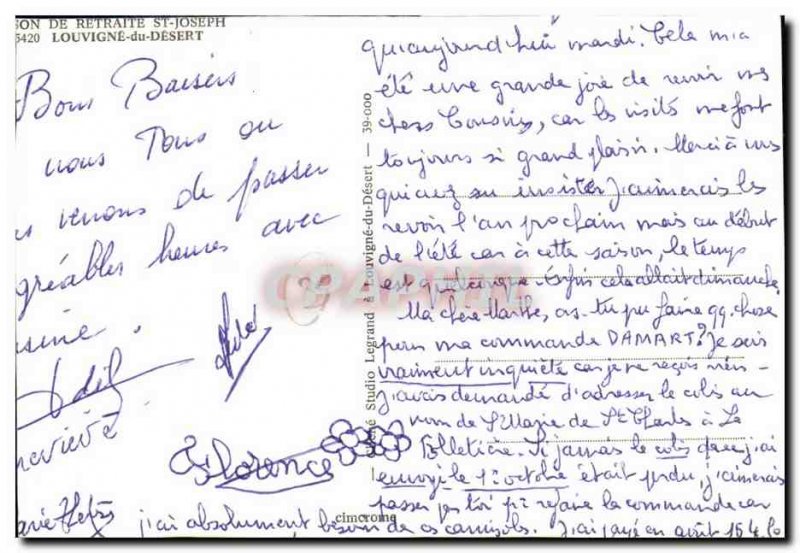 SON DE RETRAITE ST-JOSEPH
5420 LOUVIGNÉ-du-DÉSERT
Bons Baisers
nous Tous ou
venons de passer
gréables heures avec
sine.
Odile
nevieve
Florence
arie
qu'aujourd'hui mardi. Cela m'a
été une grande joie de revoir nos
chers Cousins, car les visites me font
toujours si grand plaisir. Merci à vous
qui avez su insister. J'aimerais les
revoir l'an prochain mais au début
de l'été car à cette saison, le temps
est quelconque. Enfin cela allait dimanche
Ma chère Marthe, as-tu pu faire qq. chose
pour ma commande DAMART? Je suis
vraiment inquiète car je ne reçois rien -
J'avais demandé d'adresser le colis au
nom de Sr Marie de St Charles à La
Pelletière. Si jamais le colis dont j'ai
envoyé le 1er octobre était perdu, j'aimerais
passer par toi pr refaire la commande car
j'ai absolument besoin de ces camisols. J'ai payé en août 154,
Cliché Studio Legrand à Louvigné-du-Désert — 39-000
cimcrome
CPAPHIL